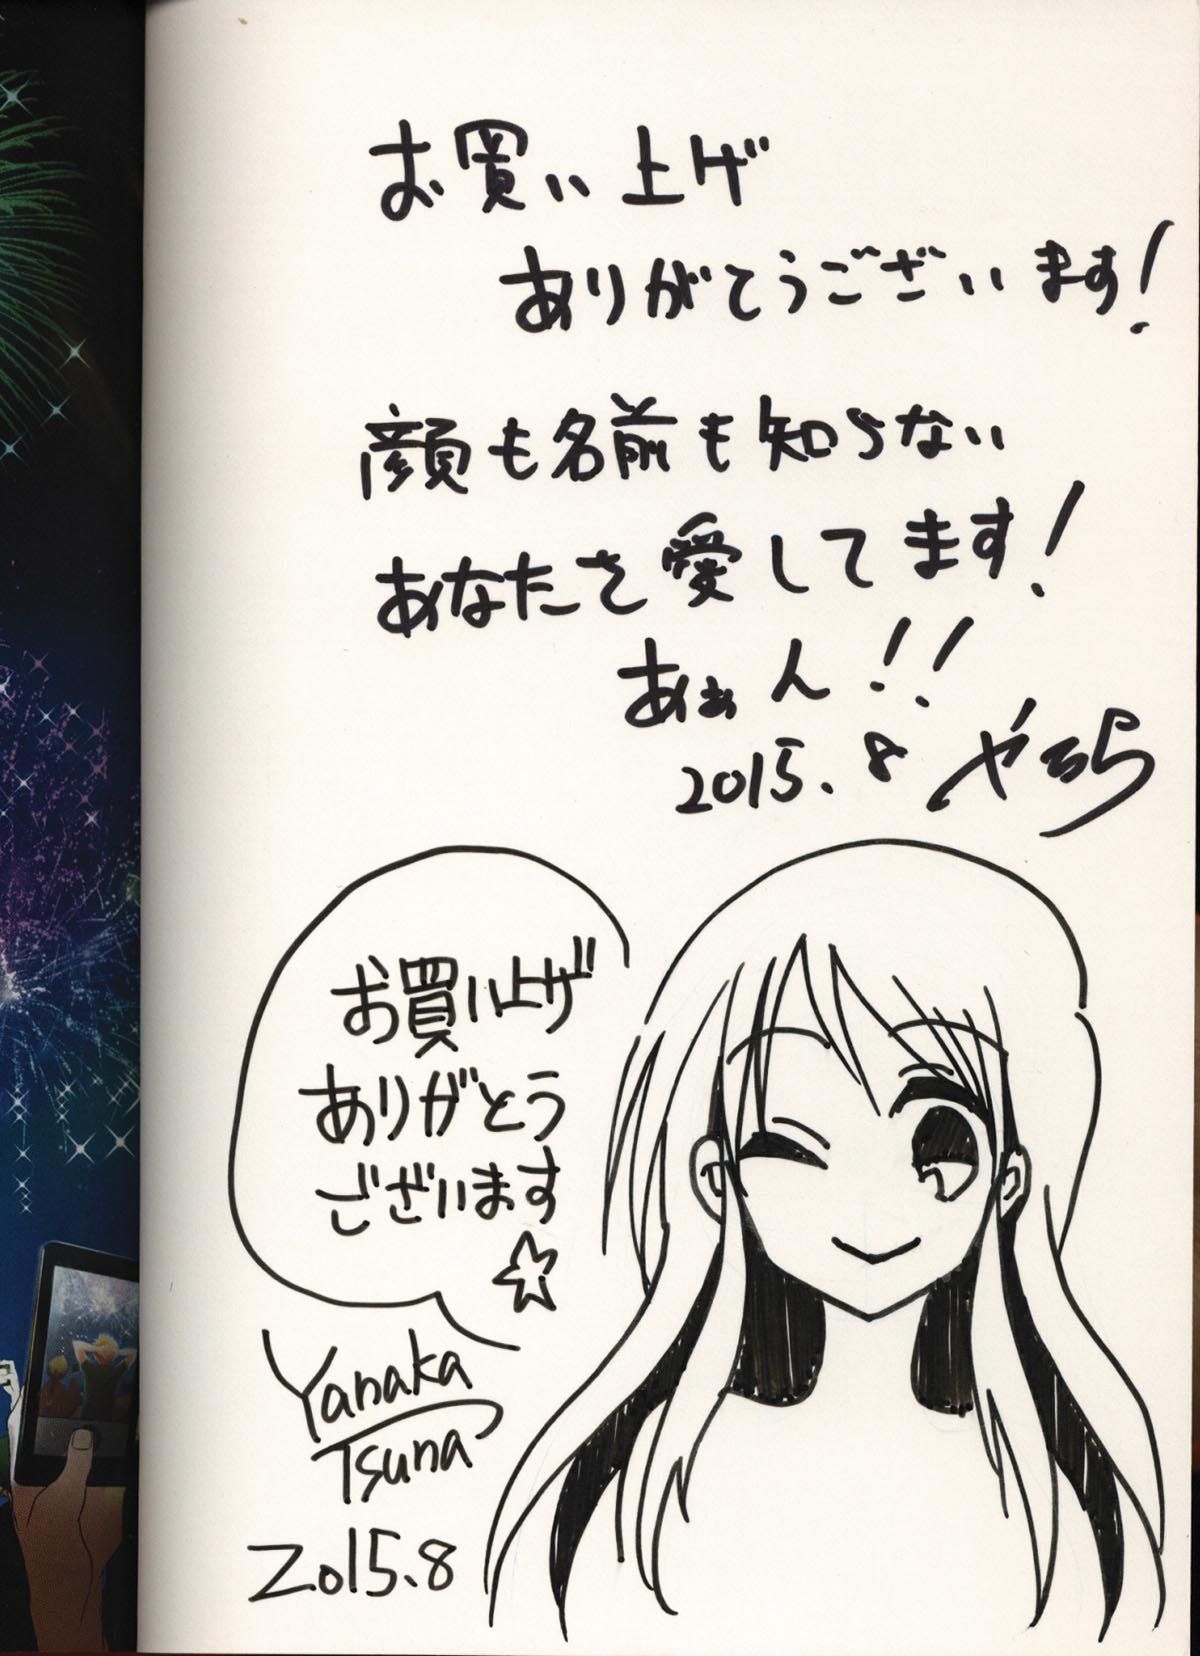 お買い上げ
ありがとうございます!
顔も名前も知らない
あなたを愛してます!
あぁん!!
2015.8
お買い上げ
ありがとう
ございます
☆
Yanaka
Tsuna
2015.8